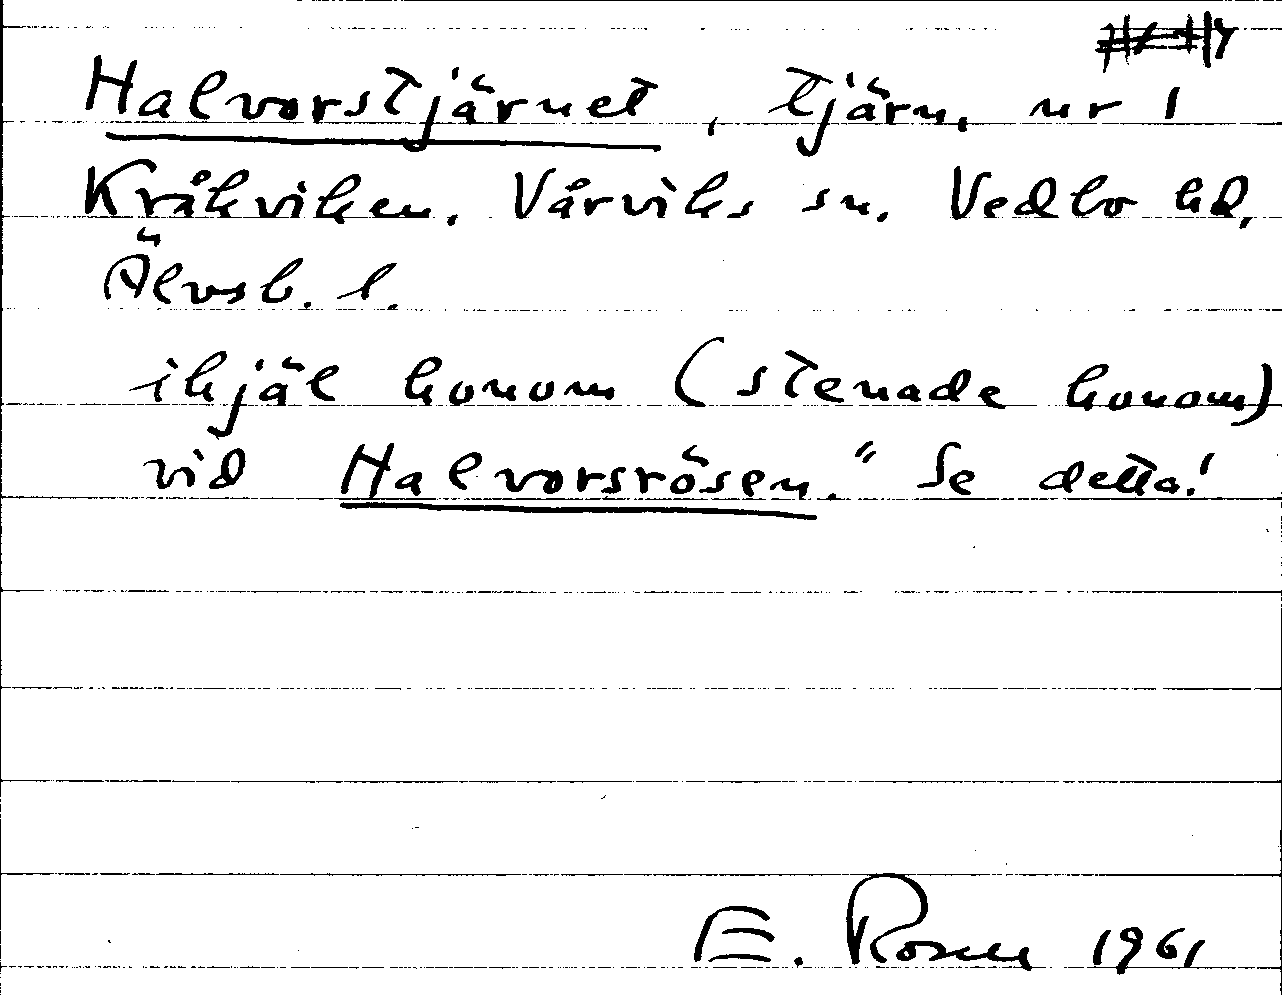 Halvorstjärnet, tjärn, nr 1
Kråkviken. Vårviks sn. Vedbo hd,
Älvsb. l.
ihjäl honom (stenade honom)
vid Halvorsrösen." Se detta!
E. Rosén 1961